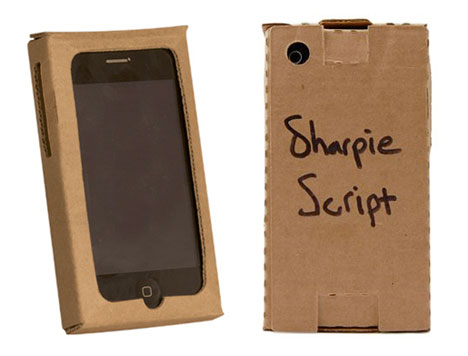 Sharpie
Script